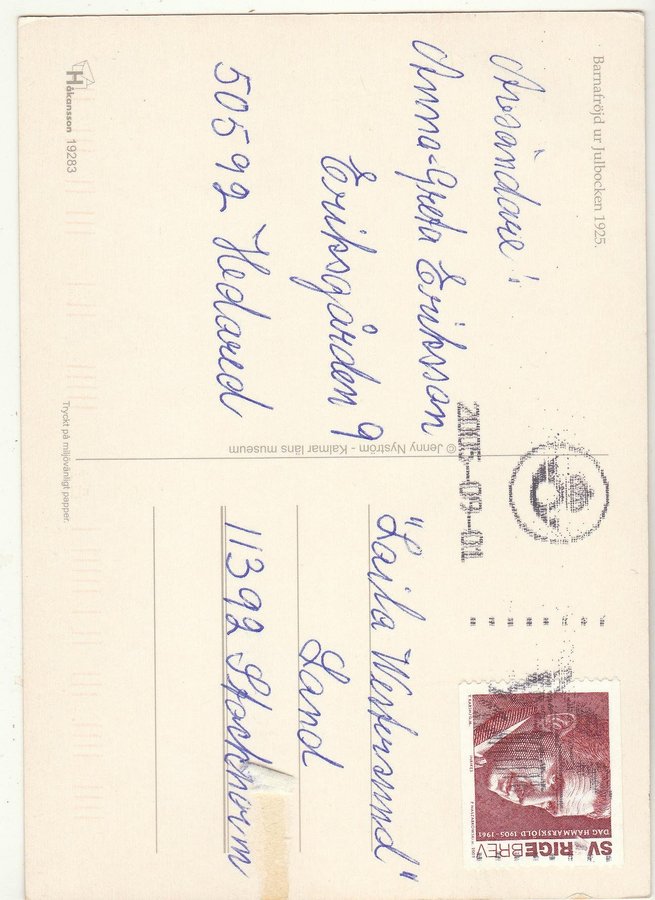 Barnafröjd ur Julbocken 1925.
Avsändare:
Anna-Greta Eriksson
Eriksgården 9
50592 Hedared
Håkansson 19283
© Jenny Nyström - Kalmar läns museum
Tryckt på miljövänligt papper.
2005-09-01
SVERIGE BREV
DAG HAMMARSKJÖLD 1905-1961
"Laila Westersund"
Sand
11392 Stockholm